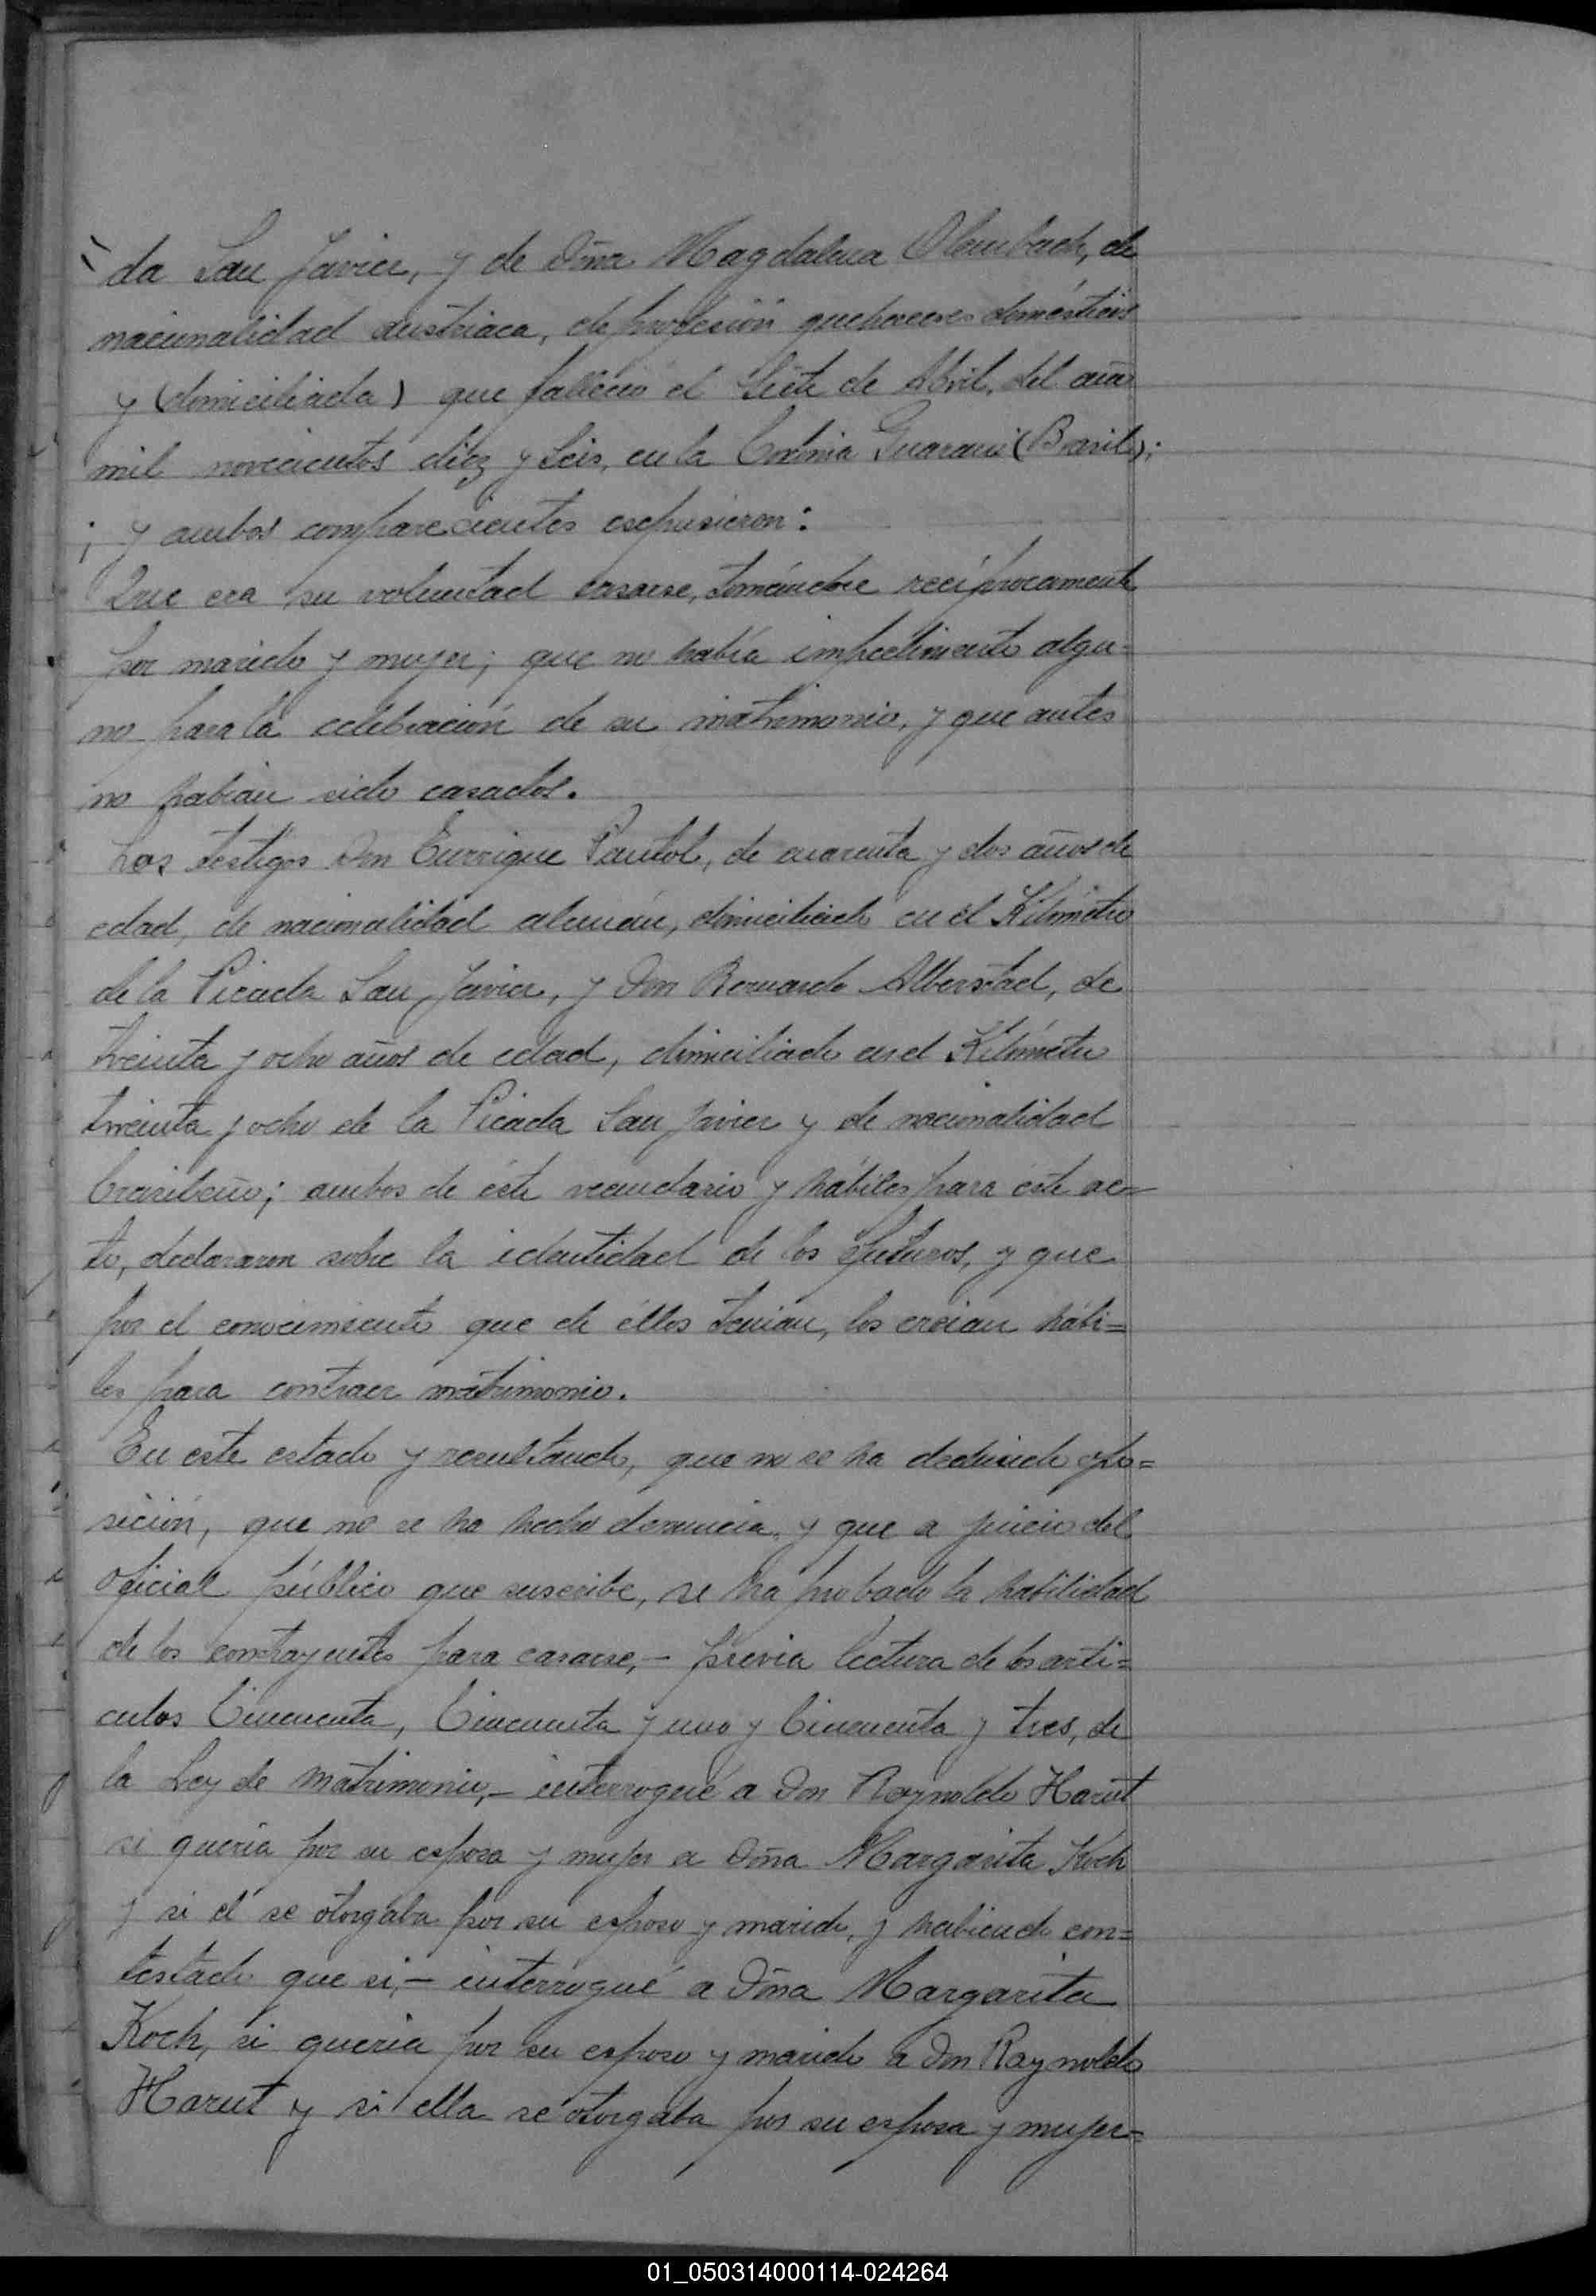 da San Javier, y de Dña Magdalena Olembach, de
nacionalidad austriaca, de profesión quehaceres domésticos
y (domiciliada) que falleció el Siete de Abril, del año
mil novecientos diez y Seis, en la Colonia Guaraní (Brasil);
; y ambos comparecientes expusieron:
Que era su voluntad casarse, tomándose recíprocamente
por marido y mujer; que no había impedimento algu=
no para la celebración de su matrimonio, y que antes
no habían sido casados.
Los testigos Don Enrrique Pautol, de cuarenta y dos años de
edad, de nacionalidad alemán, domiciliado en él Kilómetro
de la Picada San Javier, y Don Bernardo Alberstad, de
treinta y ocho años de edad, domiciliado en el Kilómetro
treinta y ocho de la Picada San Javier y de nacionalidad
brasileño; ambos de éste vecindario y hábiles para éste ac=
to, declararon sobre la identidad de los futuros, y que
por el conocimiento que de éllos tenían, los creían hábi=
les para contraer matrimonio.
En este estado y resultando, que no se ha deducido opo=
sición, que no se ha hecho denuncia, y que a juicio del
Oficial público que suscribe, se ha probado la habilidad
de los contrayentes para casarse,- previa lectura de los artí=
culos Cincuenta, Cincuenta y uno y Cincuenta y tres, de
la Ley de Matrimonio,- interrogué a Don Raynoldo Harut
si quería por su esposa y mujer a Dña Margarita Koch
y si él se otorgaba por su esposo y marido, y habiendo con=
testado que si,- interrogué a Dña Margarita
Koch, si quería por su esposo y marido a Don Raynoldo
Harut y si ella se otorgaba por su esposa y mujer=
01_050314000114-024264